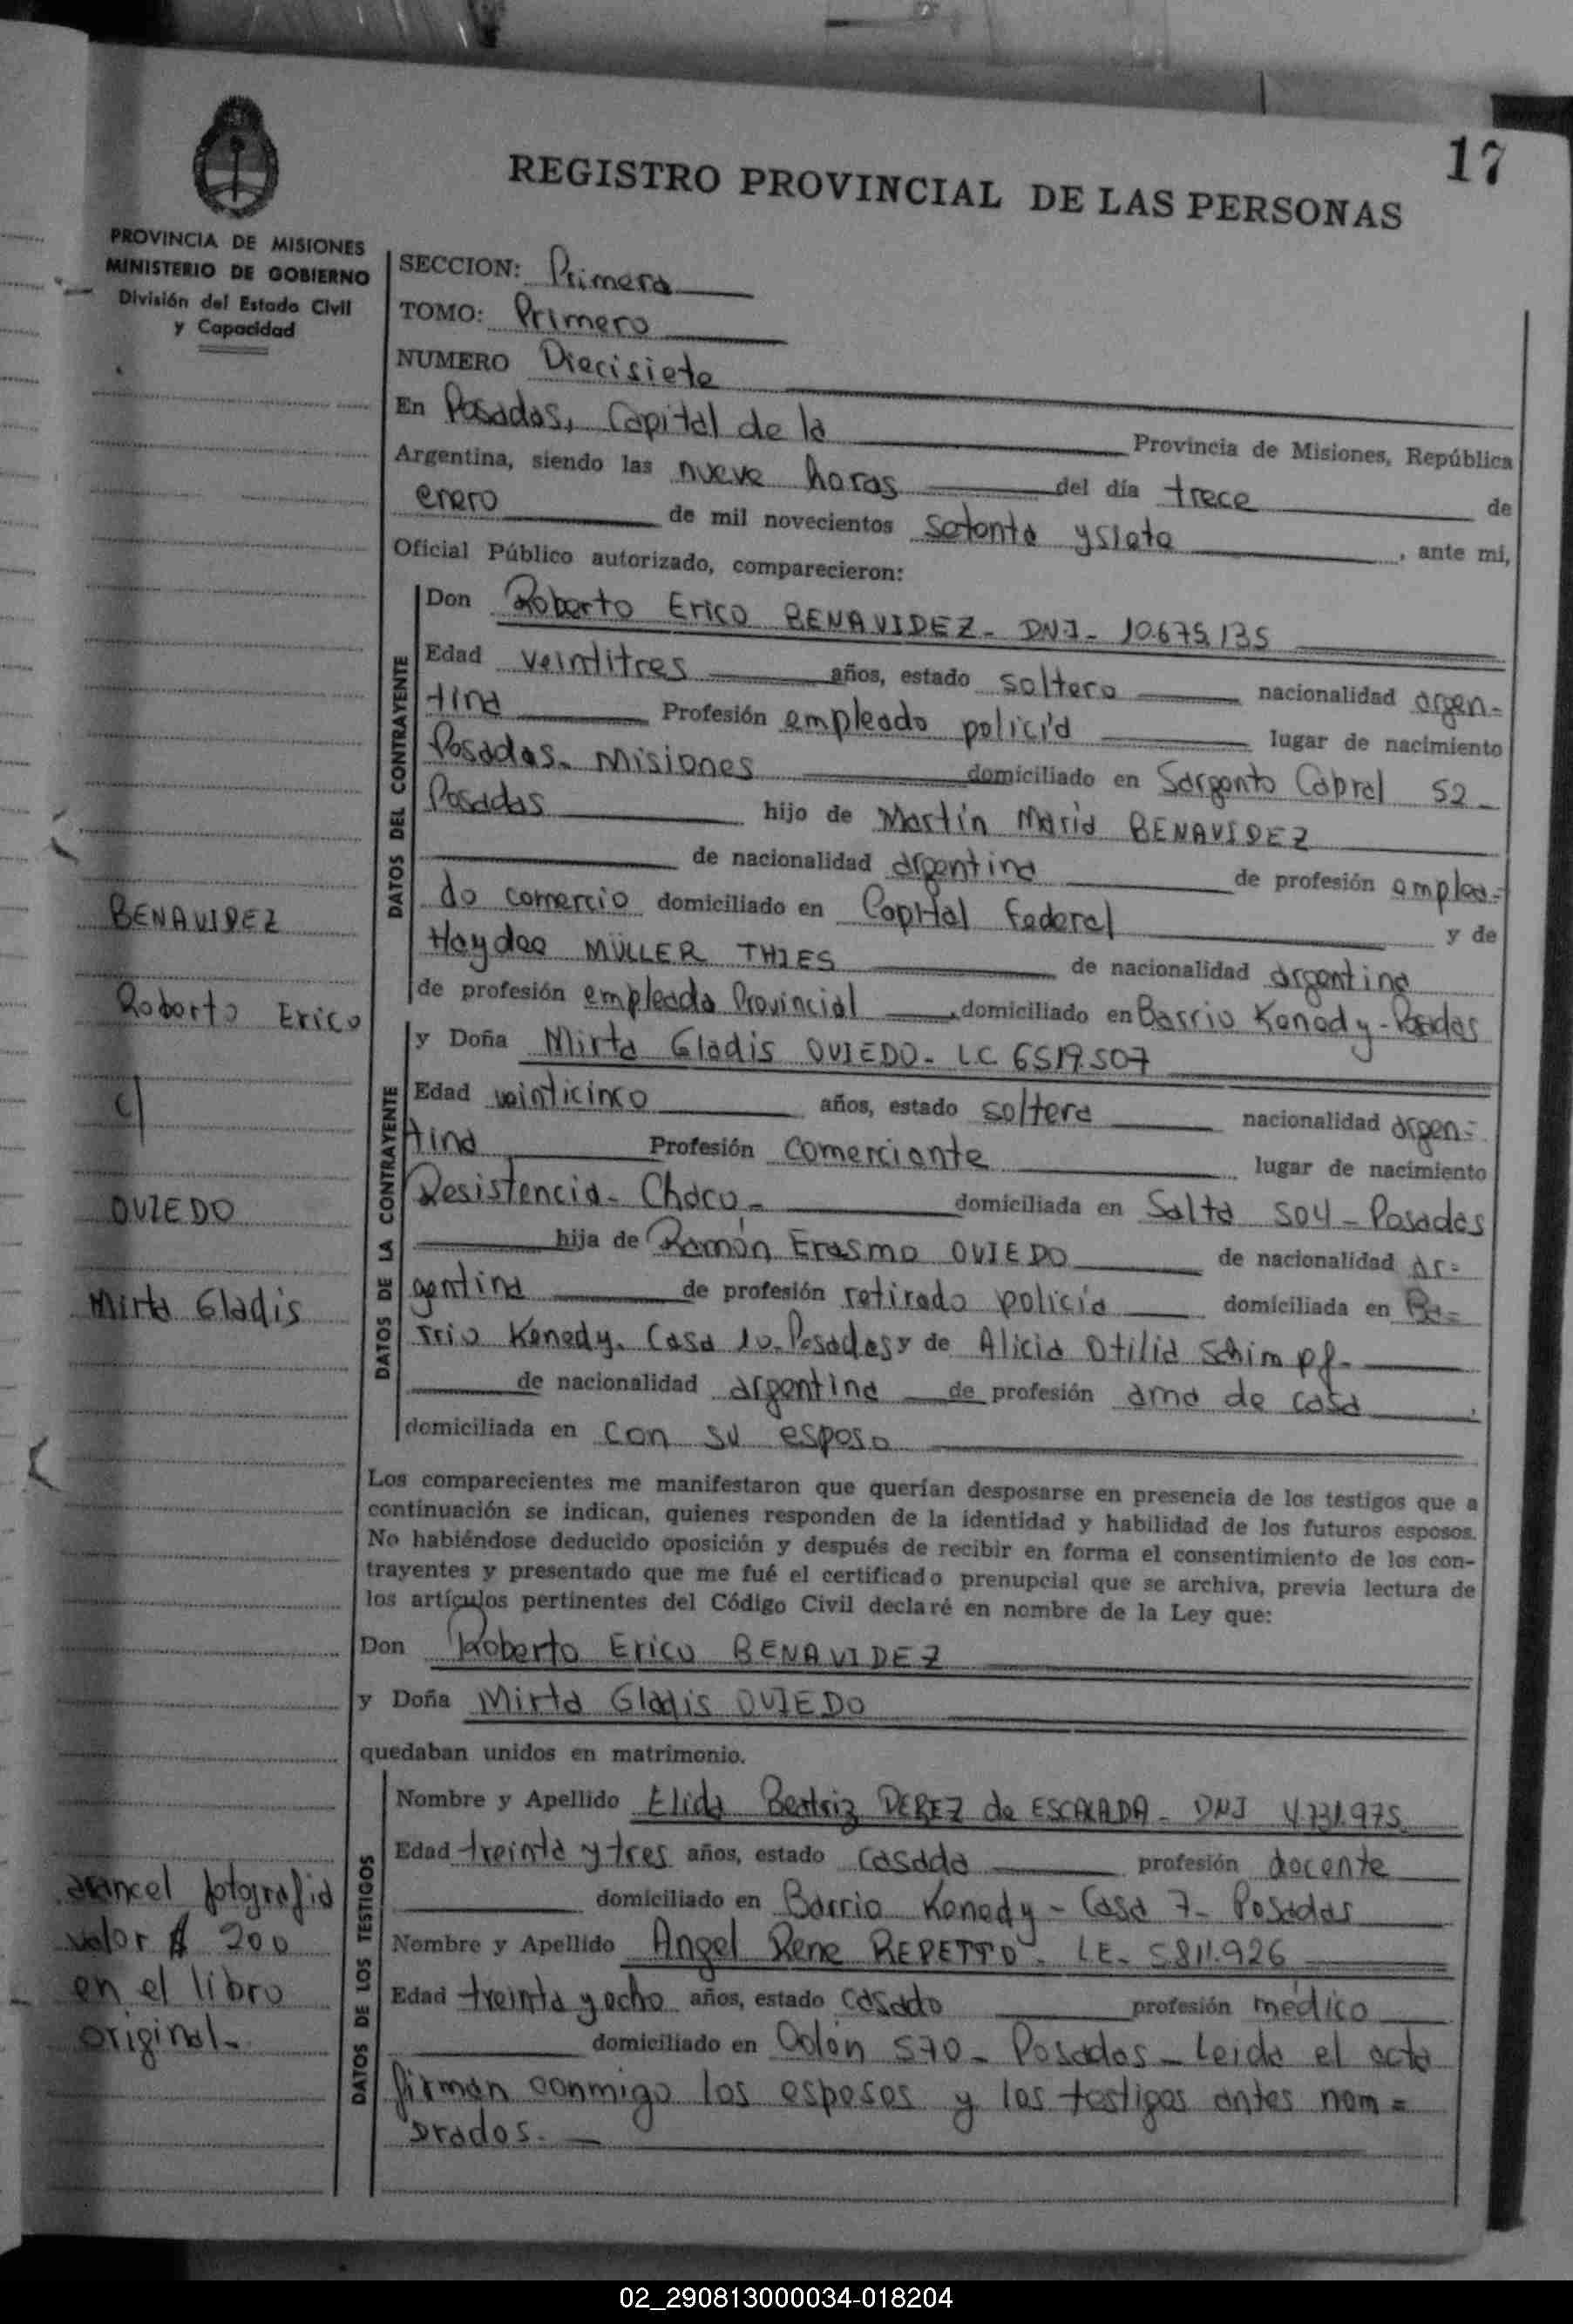 17
REGISTRO PROVINCIAL DE LAS PERSONAS
PROVINCIA DE MISIONES
MINISTERIO DE GOBIERNO
División del Estado Civil
y Capacidad
SECCION: Primera
TOMO: Primero
NUMERO Diecisiete
En Posadas, Capital de la Provincia de Misiones, República
Argentina, siendo las nueve horas del día trece de
enero de mil novecientos setenta y siete, ante mi,
Oficial Público autorizado, comparecieron:
DATOS DEL CONTRAYENTE
Don Roberto Erico BENAVIDEZ - DNI - 10.675.135
Edad veintitres años, estado soltero nacionalidad argen=
tina Profesión empleado policía lugar de nacimiento
Posadas - Misiones domiciliado en Sargento Cabral 52 -
Posadas hijo de Martín María BENAVIDEZ
de nacionalidad argentina de profesión emplea=
do comercio domiciliado en Capital Federal y de
Haydee MÜLLER THIES de nacionalidad argentina
de profesión empleada Provincial, domiciliado en Barrio Kenedy - Posadas
DATOS DE LA CONTRAYENTE
y Doña Mirta Gladis OVIEDO - LC 6519.507
Edad veinticinco años, estado soltera nacionalidad argen=
tina Profesión comerciante lugar de nacimiento
Resistencia - Chaco - domiciliada en Salta 504 - Posadas
hija de Ramón Erasmo OVIEDO de nacionalidad ar=
gentina de profesión retirado policía domiciliada en Ba=
rrio Kenedy. Casa 10. Posadas y de Alicia Otilia Schimpf -
de nacionalidad argentina de profesión ama de casa,
domiciliada en con su esposo
Los comparecientes me manifestaron que querían desposarse en presencia de los testigos que a
continuación se indican, quienes responden de la identidad y habilidad de los futuros esposos.
No habiéndose deducido oposición y después de recibir en forma el consentimiento de los con-
trayentes y presentado que me fué el certificado prenupcial que se archiva, previa lectura de
los artículos pertinentes del Código Civil declaré en nombre de la Ley que:
Don Roberto Erico BENAVIDEZ
y Doña Mirta Gladis OVIEDO
quedaban unidos en matrimonio.
DATOS DE LOS TESTIGOS
Nombre y Apellido Elida Beatriz PEREZ de ESCALADA - DNI 4.731.975
Edad treinta y tres años, estado casada profesión docente
domiciliado en Barrio Kenedy - Casa 7 - Posadas
Nombre y Apellido Angel Rene REPETTO - LE - 5811.926
Edad treinta y ocho años, estado casado profesión médico
domiciliado en Colón 570 - Posadas - Leida el acta
firman conmigo los esposos y los testigos antes nom=
brados. -
BENAVIDEZ
Roberto Erico
c/
OVIEDO
Mirta Gladis
arancel fotografia
valor $ 200
en el libro
original -
02_290813000034-018204